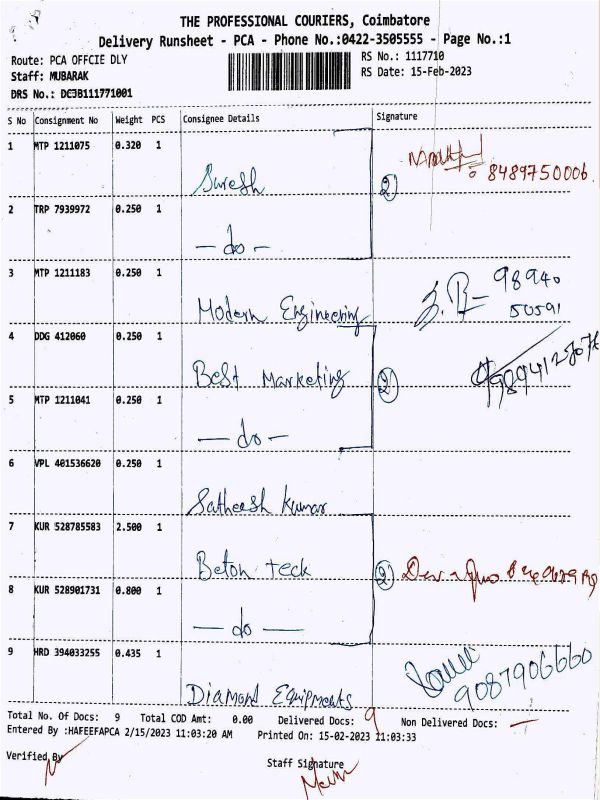 THE PROFESSIONAL COURIERS, Coimbatore
Delivery Runsheet - PCA - Phone No.:0422-3505555 - Page No.:1
Route: PCA OFFCIE DLY RS No.: 1117710
Staff: MUBARAK RS Date: 15-Feb-2023
DRS No.: DC3B111771001
S No Consignment No Weight PCS Consignee Details Signature
1 MTP 1211075 0.320 1
Suresh 2 8489750006
2 TRP 7939972 0.250 1
— do —
3 MTP 1211183 0.250 1
Modern Engineering 98940 50591
4 DDG 412060 0.250 1
Best Marketing 2
5 MTP 1211041 0.250 1
— do —
6 VPL 401536620 0.250 1
Satheesh Kumar
7 KUR 528785583 2.500 1
Beton teck 2
8 KUR 528901731 0.800 1
— do —
9 HRD 394033255 0.435 1
Diamond Equipments 9087906660
Total No. Of Docs: 9 Total COD Amt: 0.00 Delivered Docs: 9 Non Delivered Docs: —
Entered By :HAFEEFAPCA 2/15/2023 11:03:20 AM Printed On: 15-02-2023 11:03:33
Verified By Staff Signature